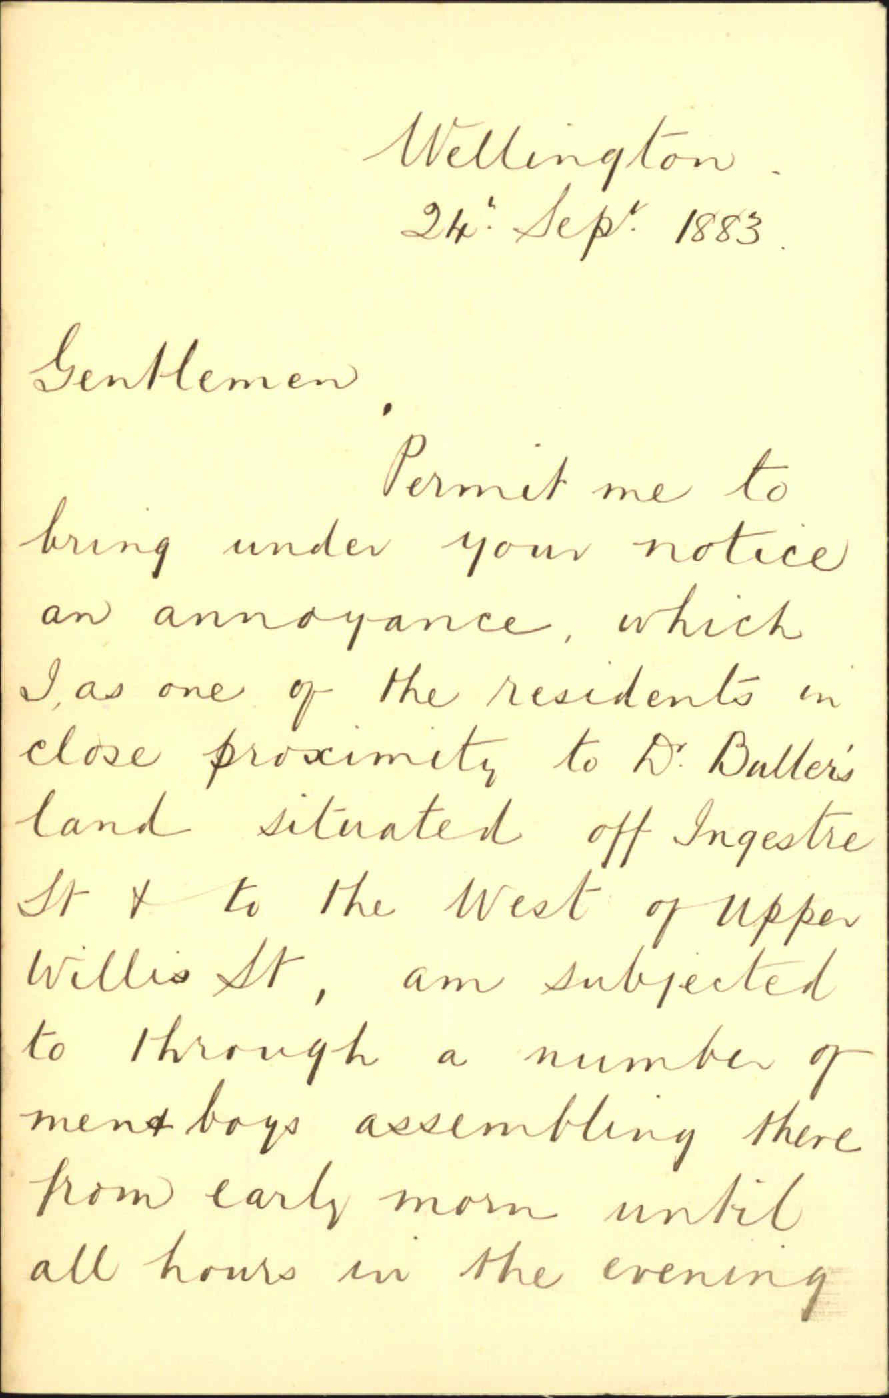 Wellington.
24t. Sept. 1883.
Gentlemen,
Permit me to
bring under your notice
an annoyance, which
I, as one of the residents in
close proximity to Dr. Buller's
land situated off Ingestre
St & to the West of Upper
Willis St, am subjected
to through a number of
men & boys assembling there
from early morn until
all hours in the evening